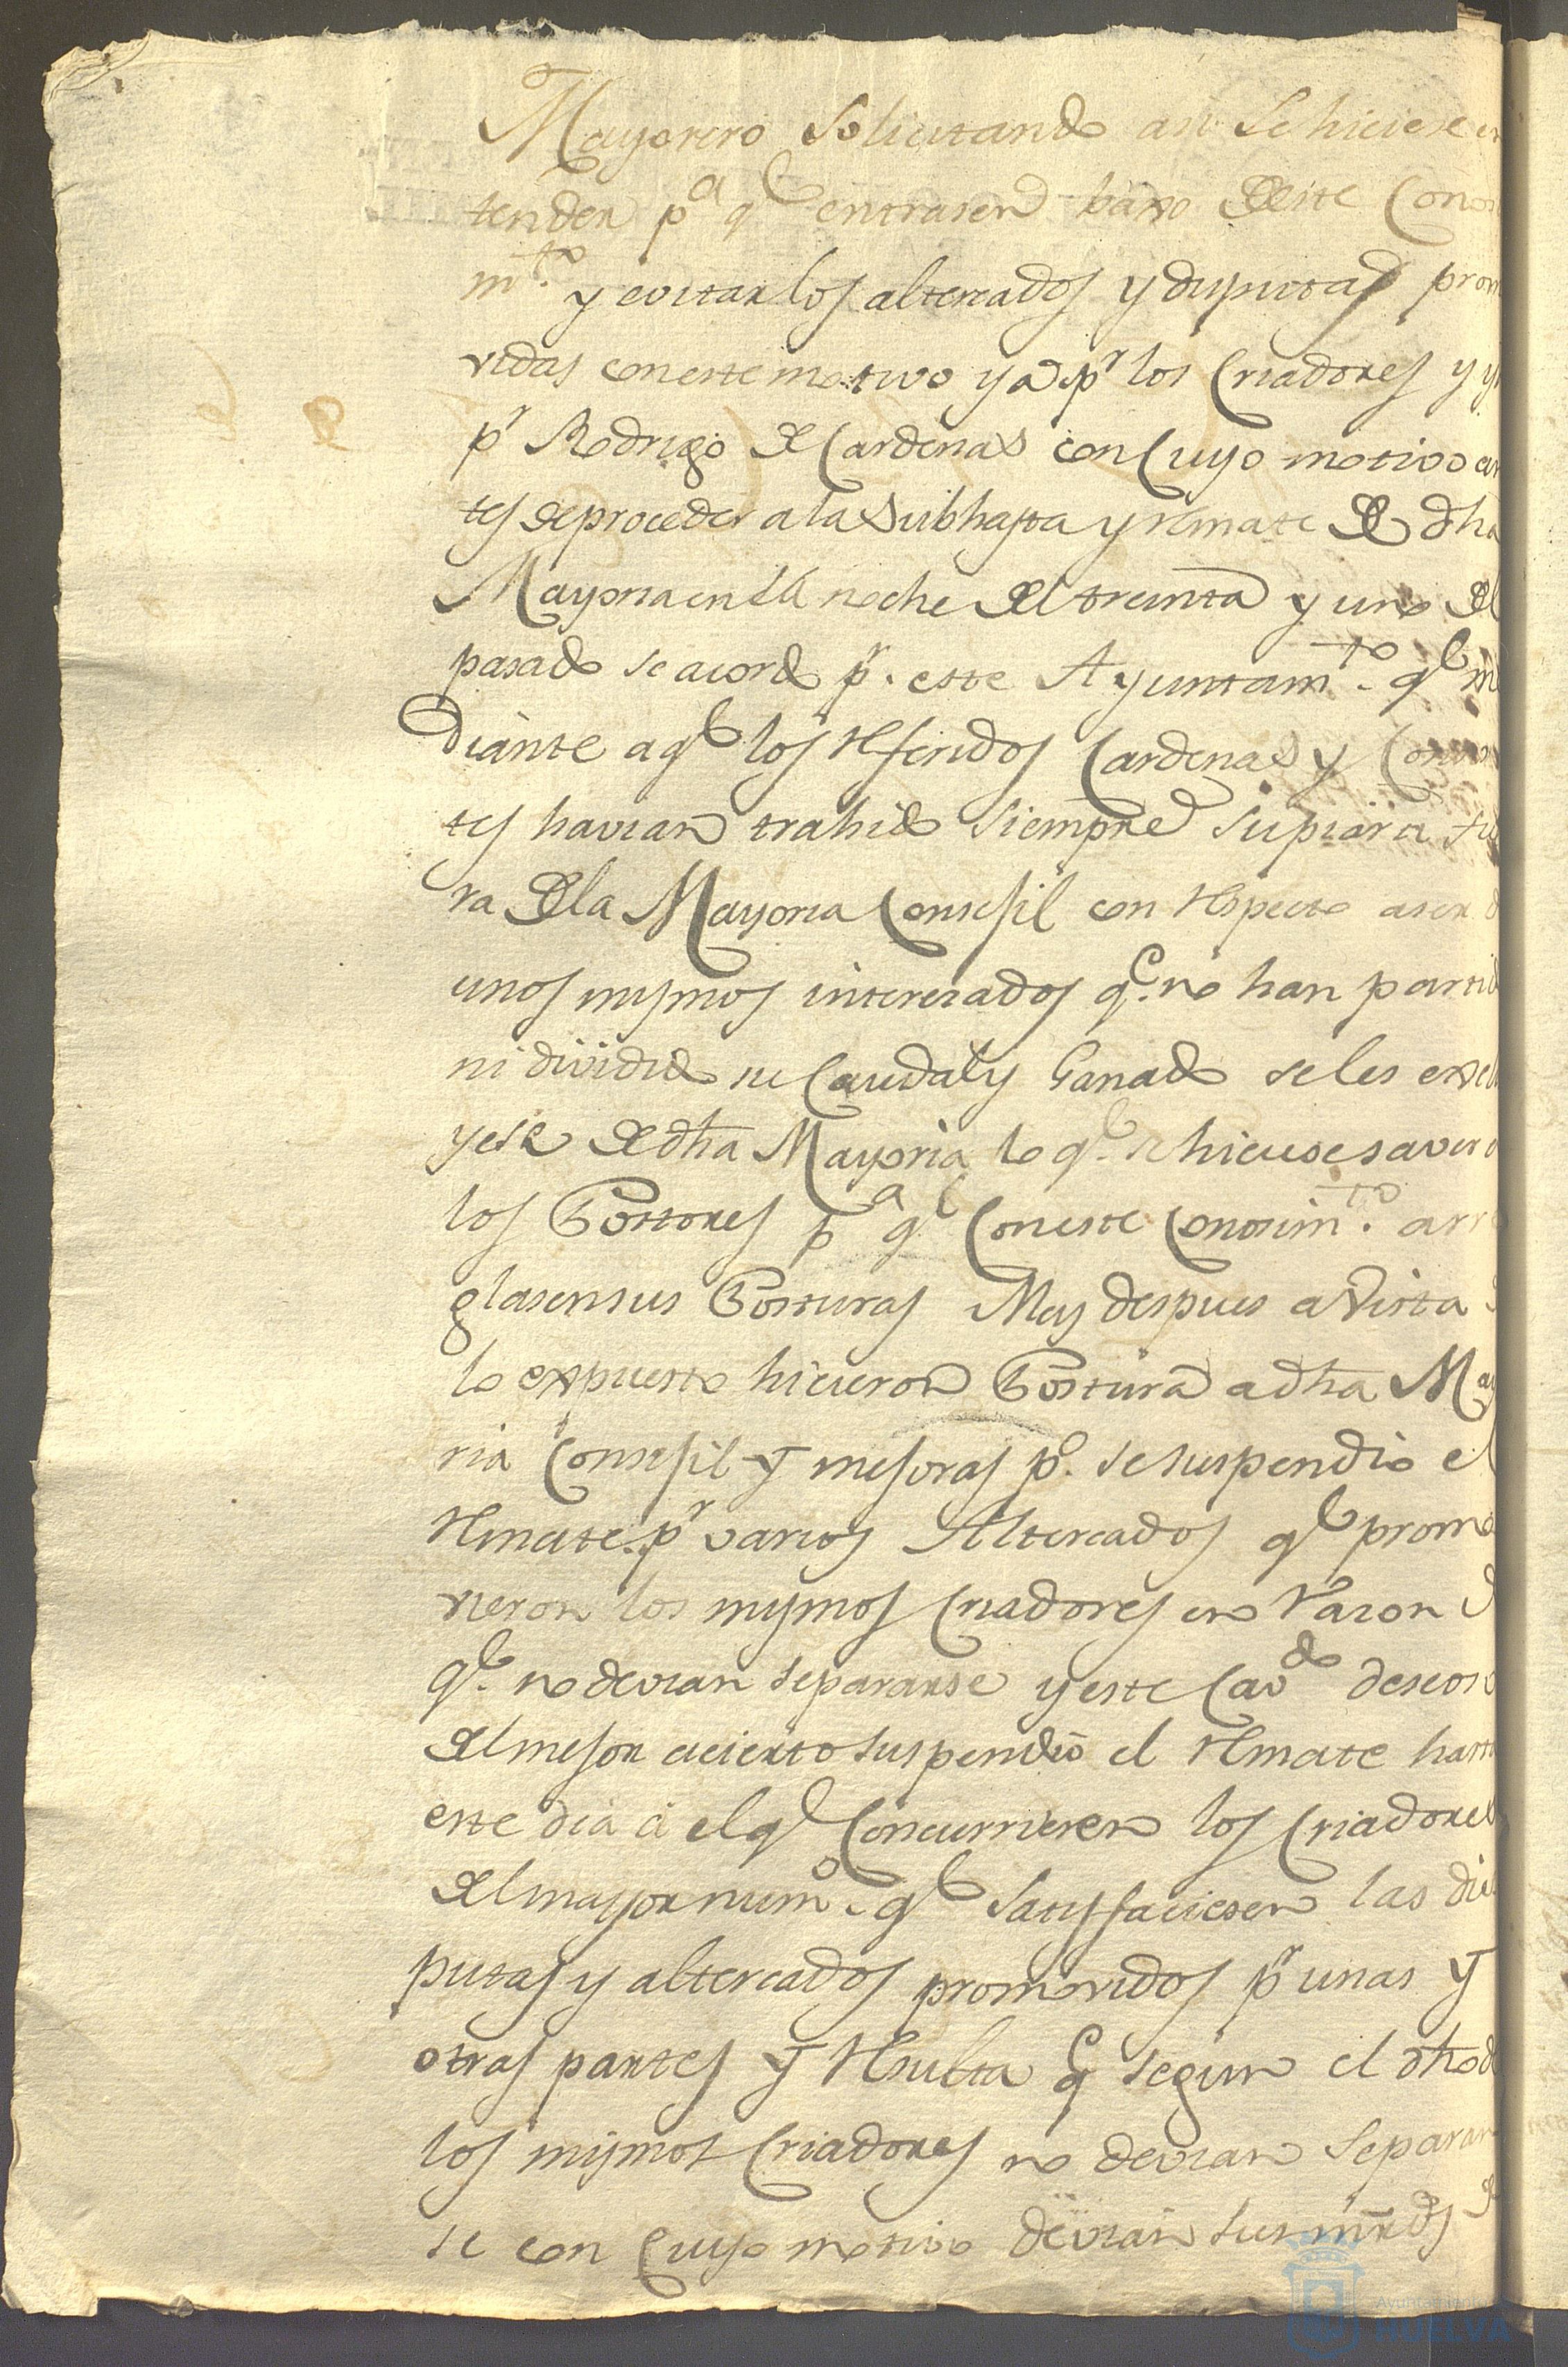 Mayorero Solicitando asi se hiciese en
tender pa. q entrasen baxo de este Conos
mto. y evitar los altercados y disputas prom
vidas con este motivo ya pr los Criadores y y
pr Rodrigo de Cardenas con Cuyo motivo an
tes de proceder a la Subhasta y remate de dha
Mayoria en la noche del treinta y uno del
pasado se acordo pr. este Ayuntamto. q me
diante a q los referidos Cardenas y
tes havian trahido Siempre su piara fu
ra de la Mayoria Consejil con respecto a ser
unos mismos interesados q. no han partid
ni dividido su Caudal y Ganado se les exclu
yese de dha Mayoria lo q. se hiciese saver a
los Postores pa q Con este Conosimto. arre
glasen sus Posturas Mas despues a Vista
lo expuesto hicieron Postura a dha May
ria Consejil y mejoras po. se suspendio el
remate pr varios Altercados q promo
vieron los mismos Criadores en razon d
q. no devian separarse y este Cavdo deseoso
del mejor acierto suspendio el remate hasta
este dia a el q Concurrieren los Criadores
del mayor numo. q Satisfaciesen las dis
putas y altercados promovidos pr unas y
otras partes y resulta q segun el dho d
los mismos Criadores no devian separar
se con Cuyo motivo devian sus mrds
Ayuntamiento
HUELVA